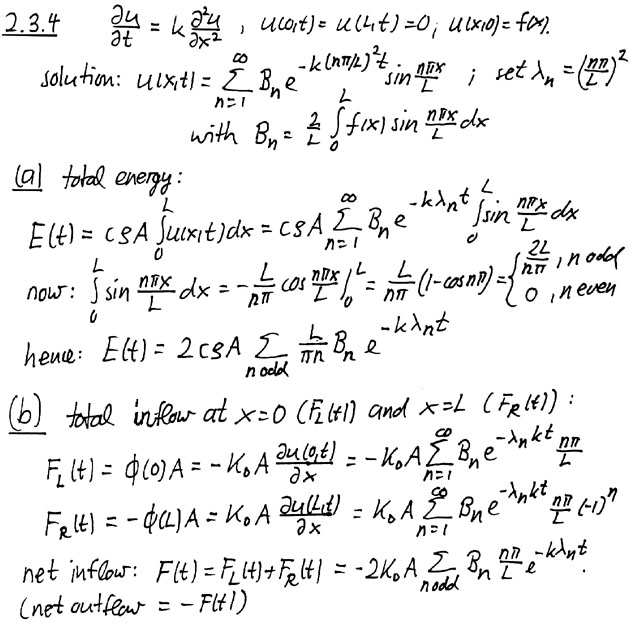 2.3.4 ∂u/∂t = k ∂²u/∂x² , u(0,t) = u(L,t) = 0; u(x,0) = f(x).
solution: u(x,t) = ∑_{n=1}^{∞} B_n e^{-k(nπ/L)²t} sin nπx/L ; set λ_n = (nπ/L)²
with B_n = 2/L ∫_0^L f(x) sin nπx/L dx
(a) total energy:
E(t) = cρA ∫_0^L u(x,t)dx = cρA ∑_{n=1}^{∞} B_n e^{-kλ_n t} ∫_0^L sin nπx/L dx
now: ∫_0^L sin nπx/L dx = -L/nπ cos nπx/L |_0^L = L/nπ (1-cos nπ) = { 2L/nπ , n odd
0 , n even
hence: E(t) = 2cρA ∑_{n odd} L/πn B_n e^{-kλ_n t}
(b) total inflow at x=0 (F_L(t)) and x=L (F_R(t)) :
F_L(t) = ϕ(0)A = -K₀A ∂u(0,t)/∂x = -K₀A ∑_{n=1}^{∞} B_n e^{-λ_n kt} nπ/L
F_R(t) = -ϕ(L)A = K₀A ∂u(L,t)/∂x = K₀A ∑_{n=1}^{∞} B_n e^{-λ_n kt} nπ/L (-1)^n
net inflow: F(t) = F_L(t) + F_R(t) = -2K₀A ∑_{n odd} B_n nπ/L e^{-kλ_n t}.
(net outflow = -F(t))